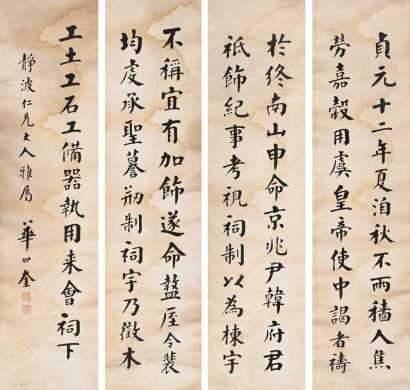 貞元十二年夏洎秋不雨穡人焦
勞嘉穀用虞皇帝使中謁者禱
於終南山申命京兆尹韓府君
祇飾紀事考視祠制以為棟宇
不稱宜有加飾遂命盩厔令裴
均虔承聖謩刱制祠宇乃徵木
工土工石工備器執用来會祠下
靜波仁兄大人雅屬
華世奎